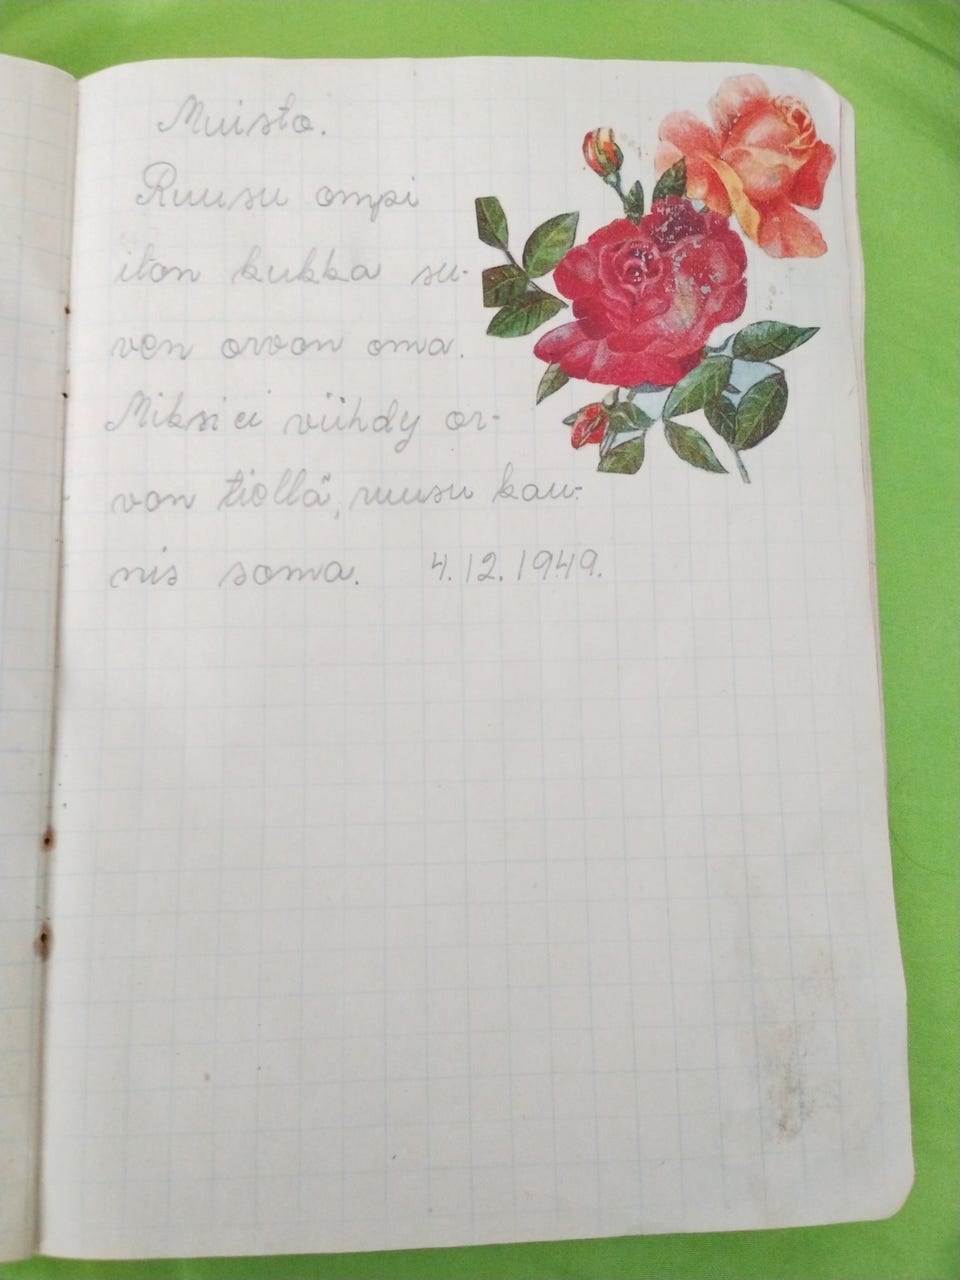 Muisto.
Ruusu ompi
iton kukka su-
ven orvon oma.
Miksi ei viihdy or-
von tiellä, ruusu kau-
nis soma. 4.12.1949.